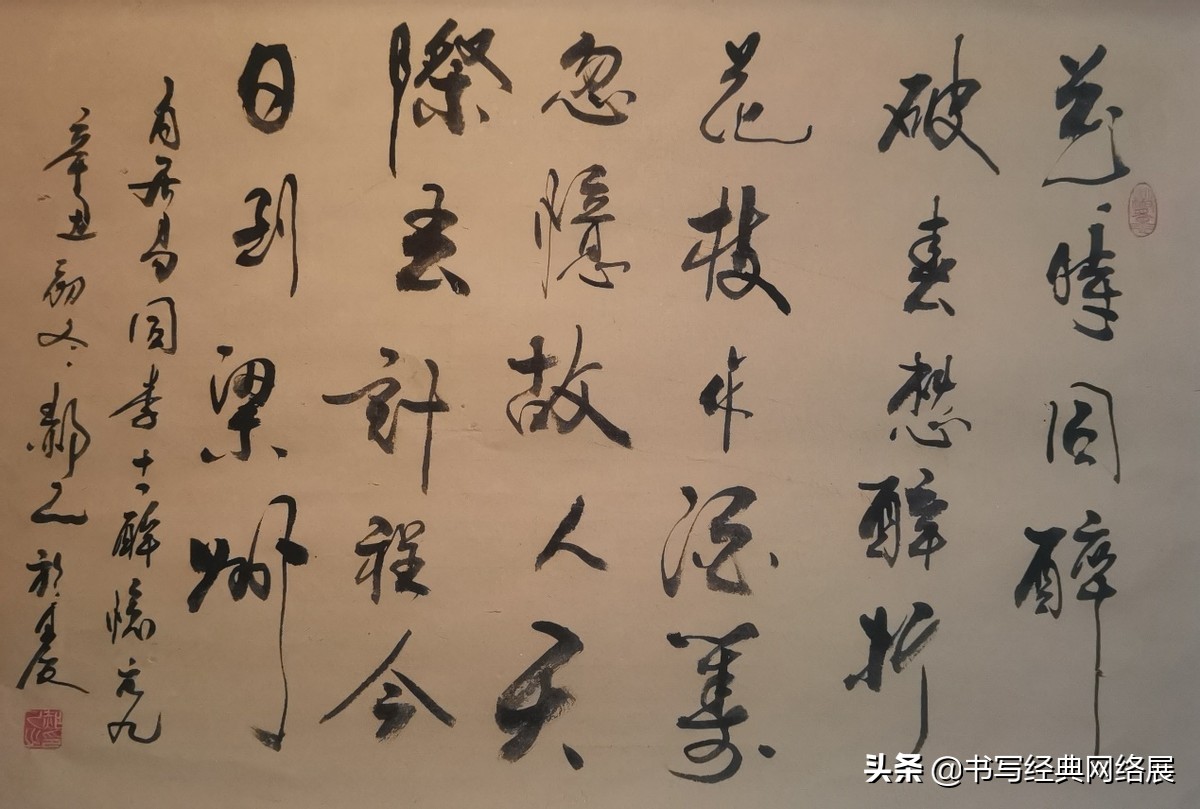 花時同醉
破春愁醉折
花枝作酒籌
忽憶故人天
際去計程今
日到梁州
白居易同李十一醉憶元九
辛丑初冬郝
头条 @书写经典网络展